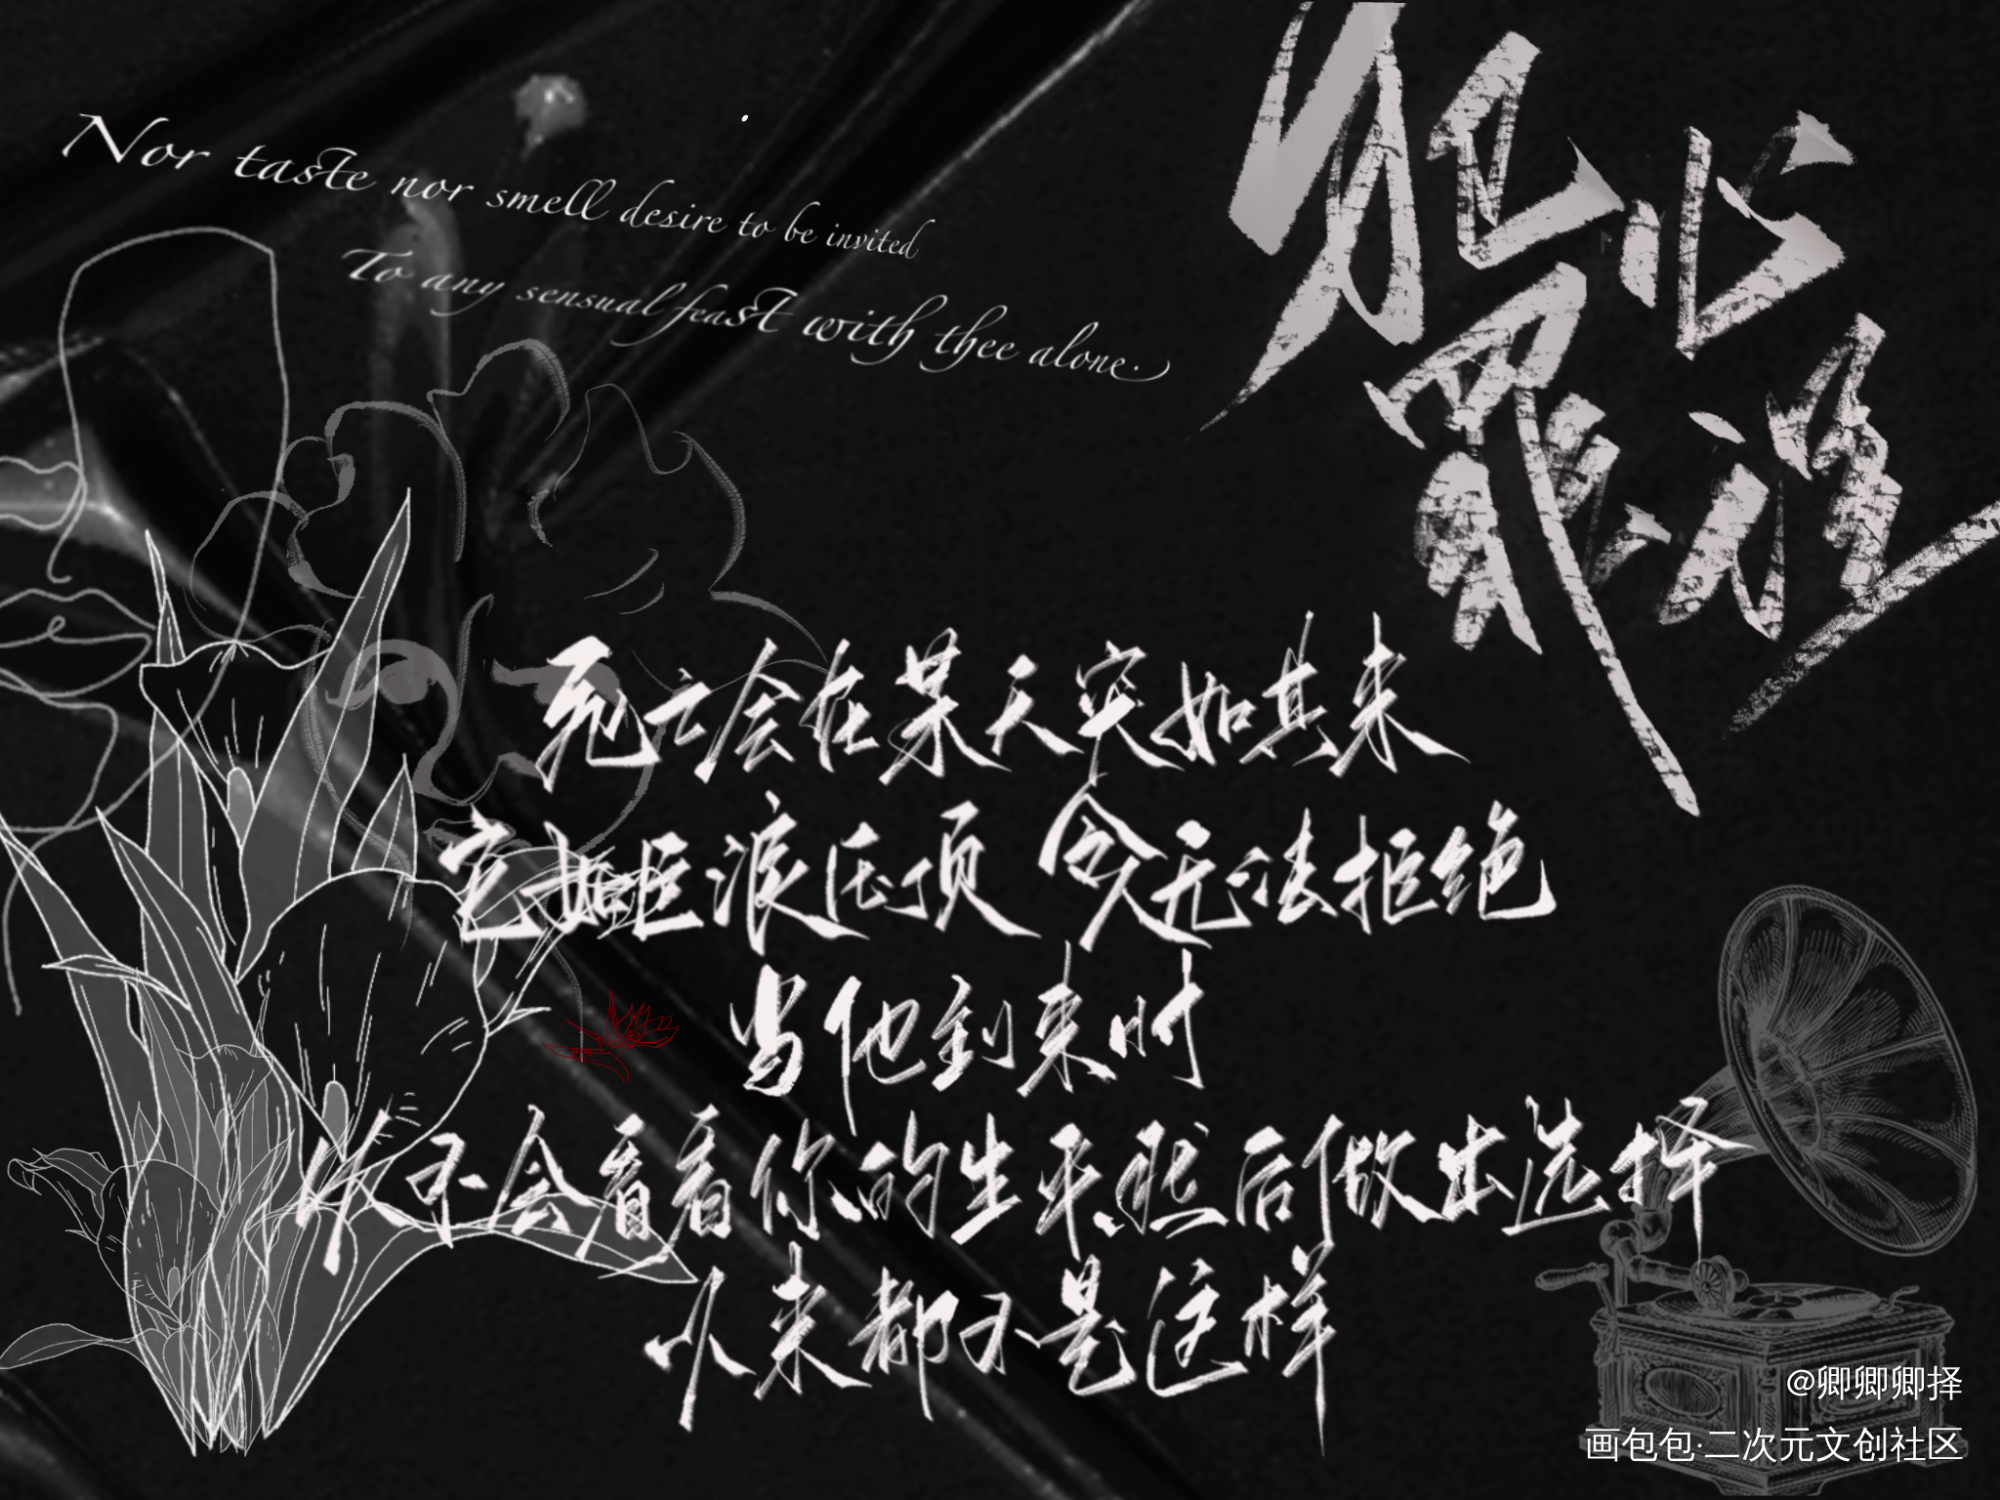 Nor taste nor smell desire to be invited
To any sensual feast with thee alone.
犯心
罪理
死亡会在某天突如其来
它如巨浪压顶 令人无法拒绝
当他到来时
从不会看看你的生平然后做出选择
从来都不是这样
@卿卿卿择
画包包·二次元文创社区